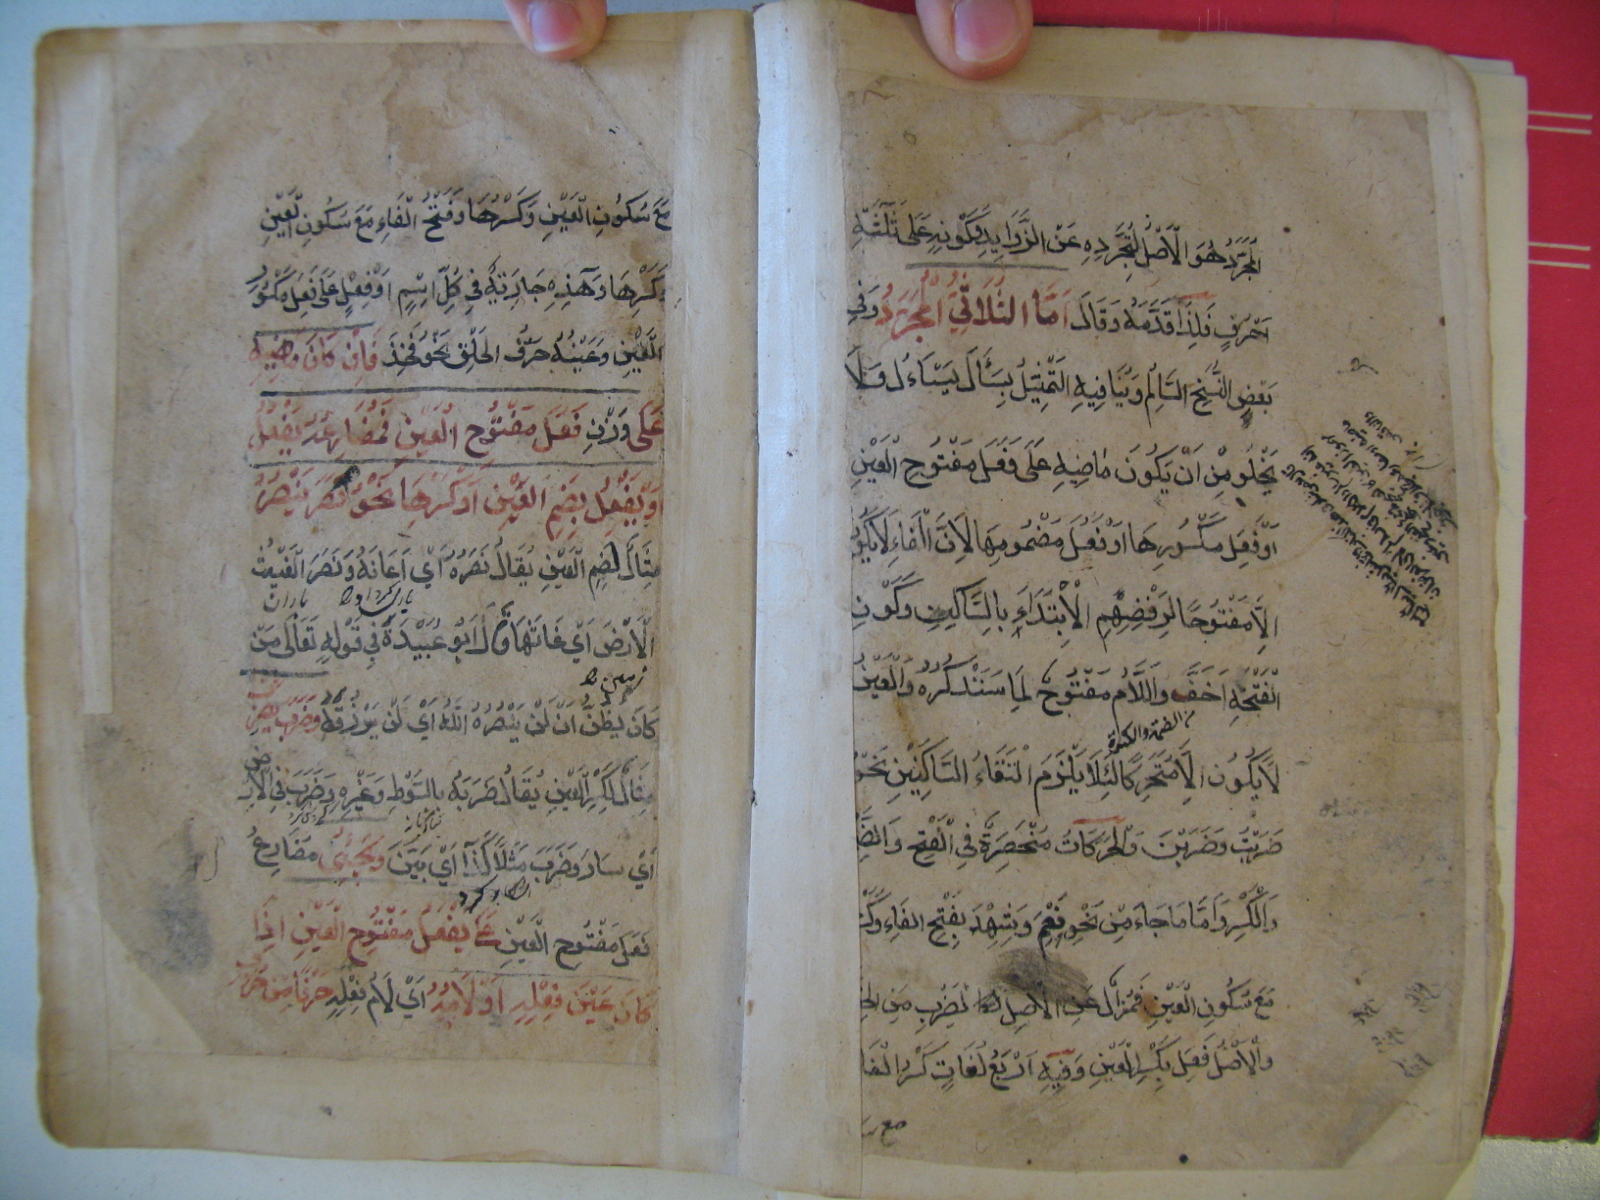 المجرد هو الأصل لتجرده عن الزوايد وكونه على ثلثة
احرف فلذا قدمه وقال اما الثلاثي المجرد وفي
بعض النسخ السالم وينافيه التمثيل بسأل يسأل ولا
يخلو من ان يكون ماضيه على فعل مفتوح العين
او فعل مكسورها او فعل مضمومها لان الفاء لا يكون
الا مفتوحا لرفضهم الابتداء بالساكن وكون
الفتحة اخف واللام مفتوح لما سنذكره والعين
من الضمة والكسرة
لا يكون الا متحركا لئلا يلزم التقاء الساكنين نحو
ضربت وضربن والحركات منحصرة في الفتح والضم
والكسر واما ما جاء من نحو نعم وشهد بفتح الفاء وكسرها
مع سكون العين فمزال عن الاصل لضرب من الخفة
والاصل فعل بكسر العين وفيه اربع لغات كسر الفاء
مع سكون العين وكسرها وفتح الفاء مع سكون العين
وكسرها وهذه جارية في كل اسم او فعل على فعل مكسور
العين وعينه حرف الحلق نحو فخذ فان كان ماضيه
على وزن فعل مفتوح العين فمضارعه يفعل
او يفعل بضم العين او كسرها نحو نصر ينصر
مثال لضم العين يقال نصره اي اعانه ونصر الغيث
ياري كرد اورا باران
الارض اي غاثها قال ابو عبيدة في قوله تعالى من
زمين را
كان يظن ان لن ينصره الله اي لن يرزقه وضرب يضرب
مثال لكسر العين يقال ضربه بالسوط وغيره وضرب في الارض
اي سار وضرب مثلا كذا اي بين ويجيئ مضارع
فعل مفتوح العين على يفعل مفتوح العين اذا
كان عين فعله او لامه اي لام فعله حرفا من حروف